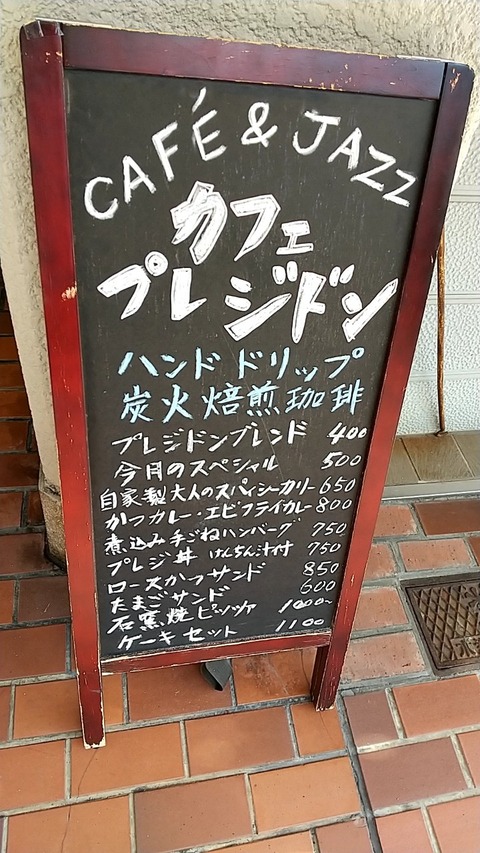 CAFÉ & JAZZ
カフェ
プレジドン
ハンドドリップ
炭火焙煎珈琲
プレジドンブレンド 400
今月のスペシャル 500
自家製大人のスパイシーカリー 650
かつカレー・エビフライカレー 800
煮込み手ごねハンバーグ 750
プレジ丼 けんちん汁付 750
ロースかつサンド 850
たまごサンド 600
石窯焼ピッツァ 1000~
ケーキセット 1100